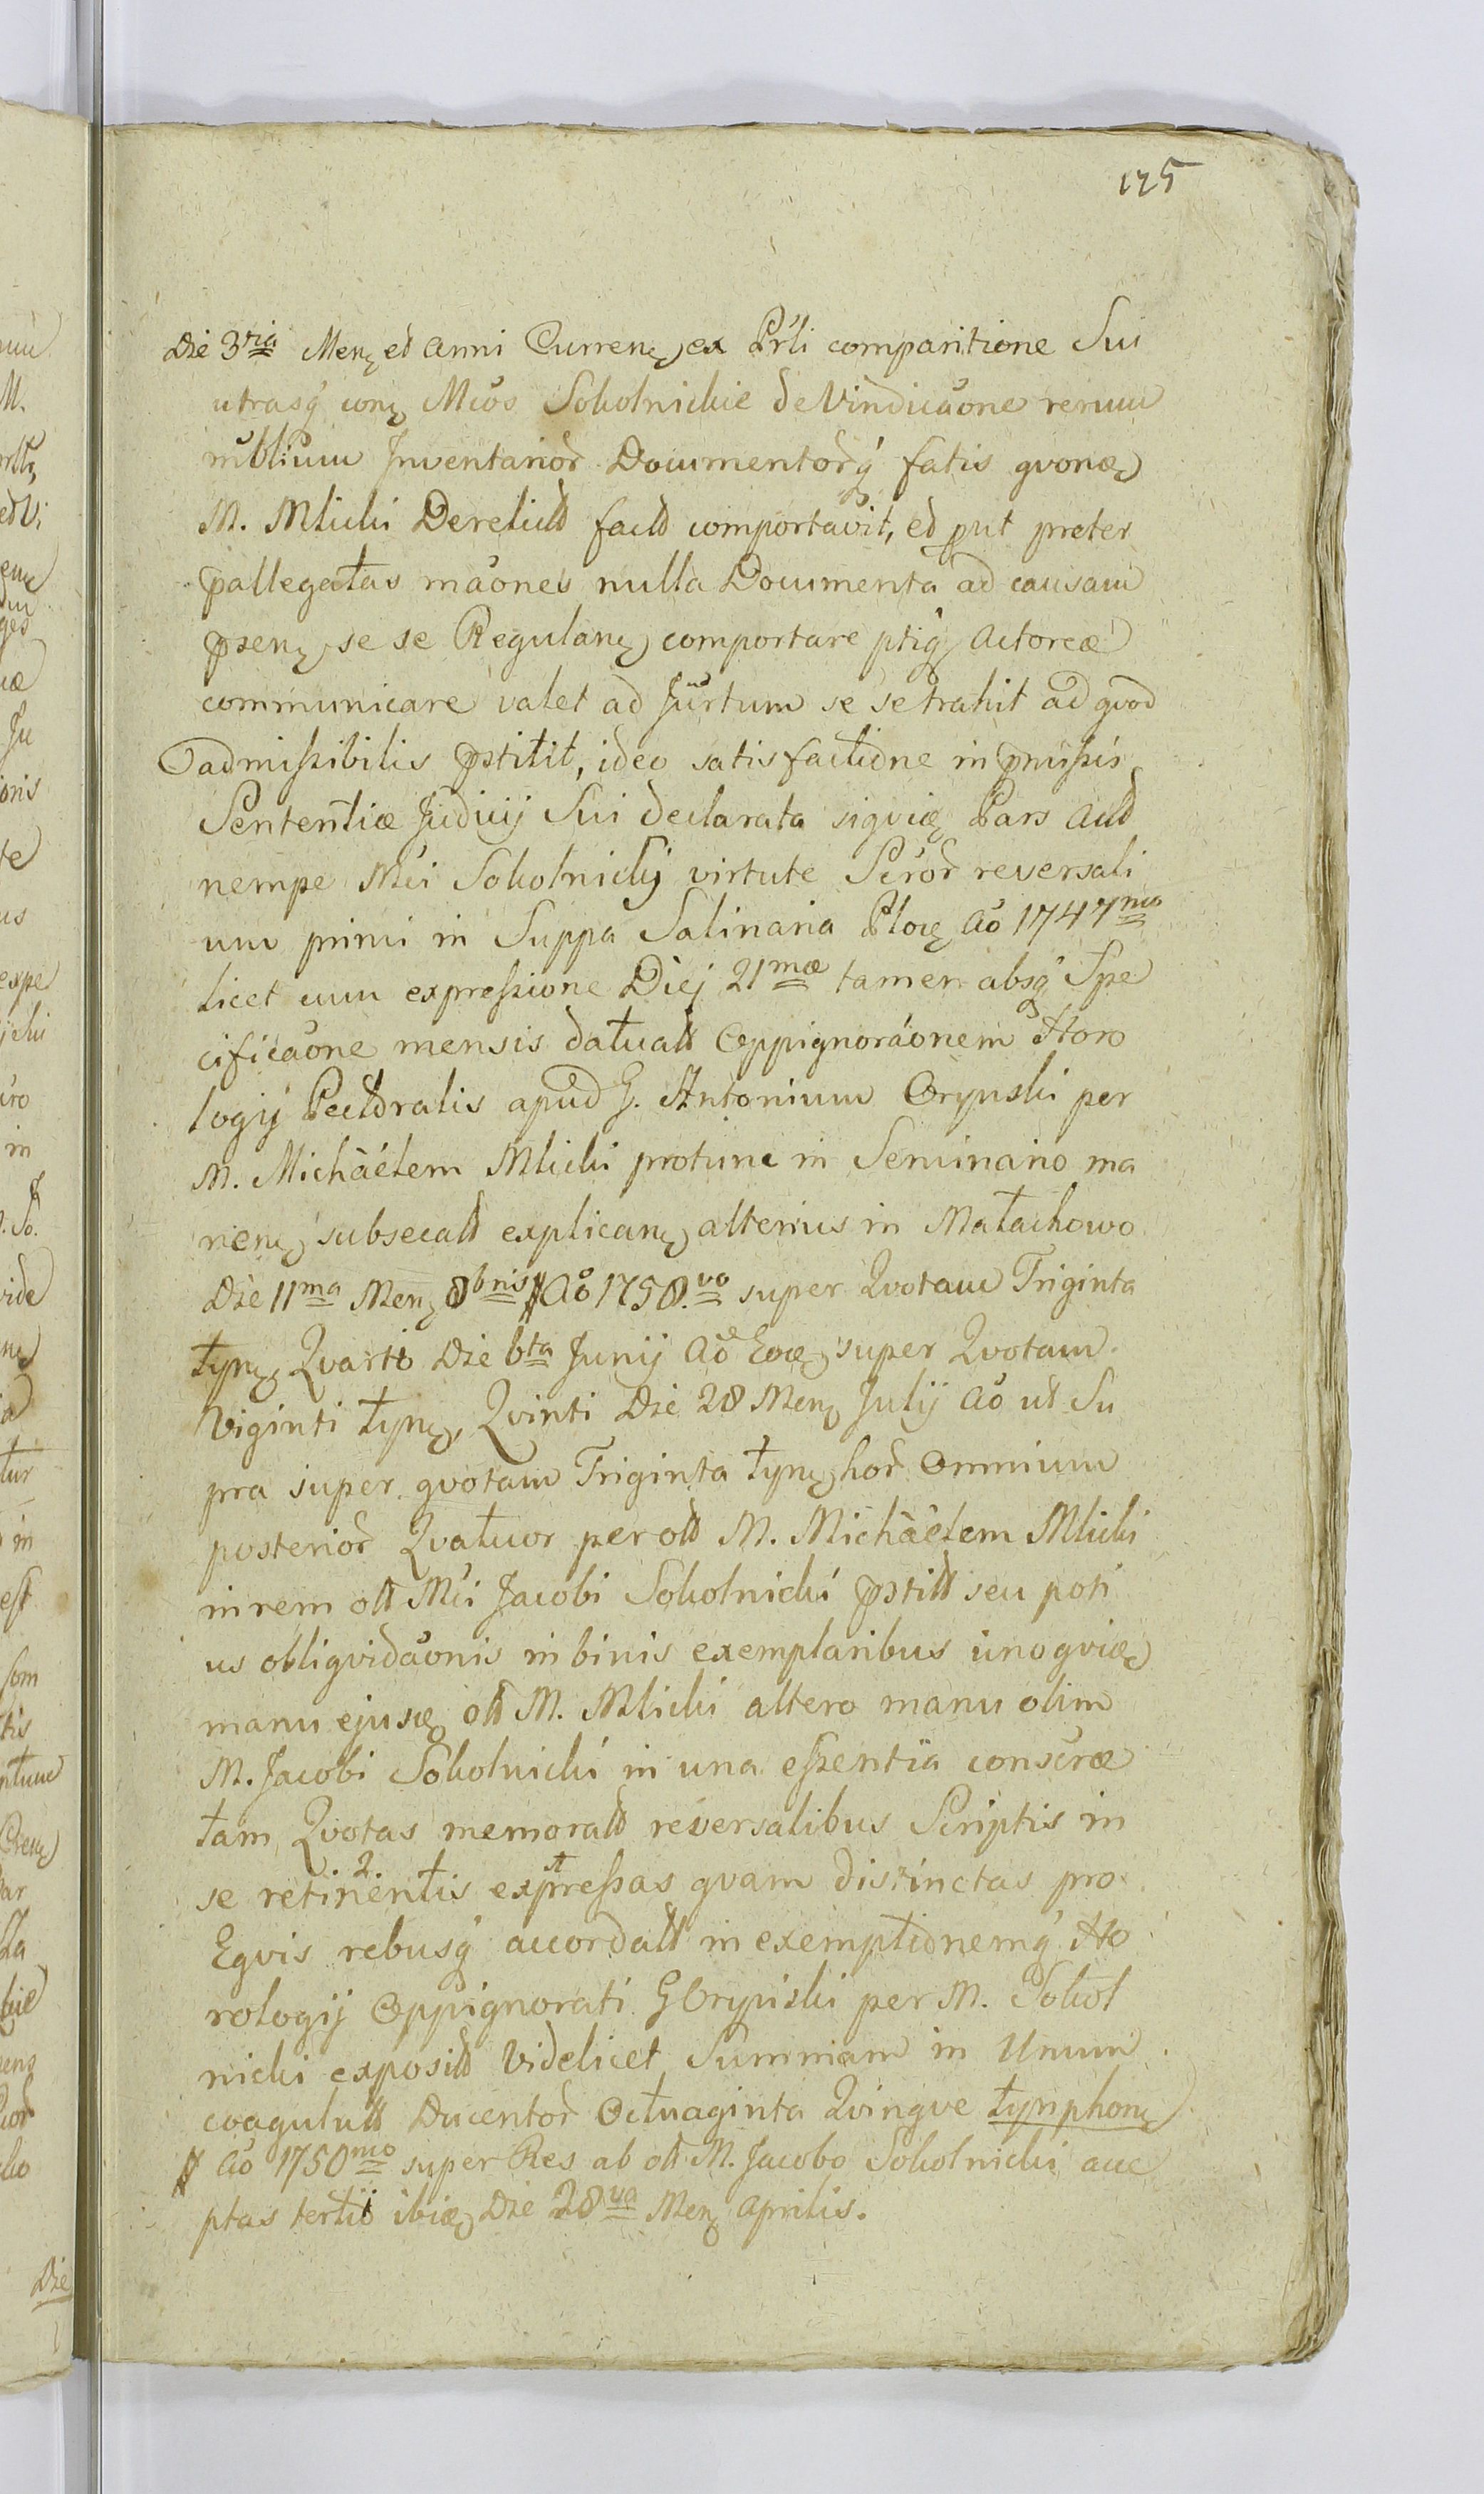 125
Die 3tia Menz et Anni Currenz ex Prli comparitione Sui
utrasq conz Mcos Sokolnickie de Vindicaone rerum
mblium Inventarior Documentorq fatis qvonaz
M. Mlicki Derelictt factt comportavit, et put preter
pallegatas maones nulla Documenta ad causam
psenz se se Regulanz comportare ptiq Actoreæ
communicare valet ad Jurtum se setrahit ad qvod
admissibilis pstitit, ideo satisfactione in pmissis
Sententiæ Judicij Sui declarata siqviæz Pars Actt
nempe Mci Sokolnickij virtute Scror reversali
um primi in Suppa Salinaria Plocz Ao 1747mo
licet cum expressione Diej 21mæ tamen absq Spe
cificaone mensis datuatt Oppignoraonem Horo
logij Pectoralis apud G. Antonium Orynski per
M. Michaelem Mlicki protunc in Seminario ma
nenz subsecatt explicanz alterius in Małachowo
Die 11ma Menz 8bris # Ao 1758.vo super Qvotam Triginta
tynz, Qvarti Die 6ta Junij Ao Eoez super Qvotam
Viginti tynz, Qvinti Die 28 Menz Julij Ao ut Su
pra super qvotam Triginta tynz hor Omnium
posterior Qvatuor per ott M. Michaelem Mlicki
in rem ott Mci Jacobi Sokolnicki pstitt seu poti
us obliqvidaonis in binis exemplaribus uno qviæz
manu ejusez ott M. Mlicki altero manu olim
M. Jacobi Sokolnicki in una essentia conscræ
tam Qvotas memoratt reversalibus Scriptis in
se retinentis expressas qvam distinctas pro
Eqvis rebusq accordatt in exemptionemq Ho
rologij Oppignorati G Orynski per M. Sokol
nicki expositt Videlicet Summam in Unum
coagulutt Ducentor Octuaginta Qvinqve tynphonz
# Ao 1750mo super Res ab ott M. Jacobo Sokolnicki acce
ptas tertij ibiez Die 28va Menz Aprilis.